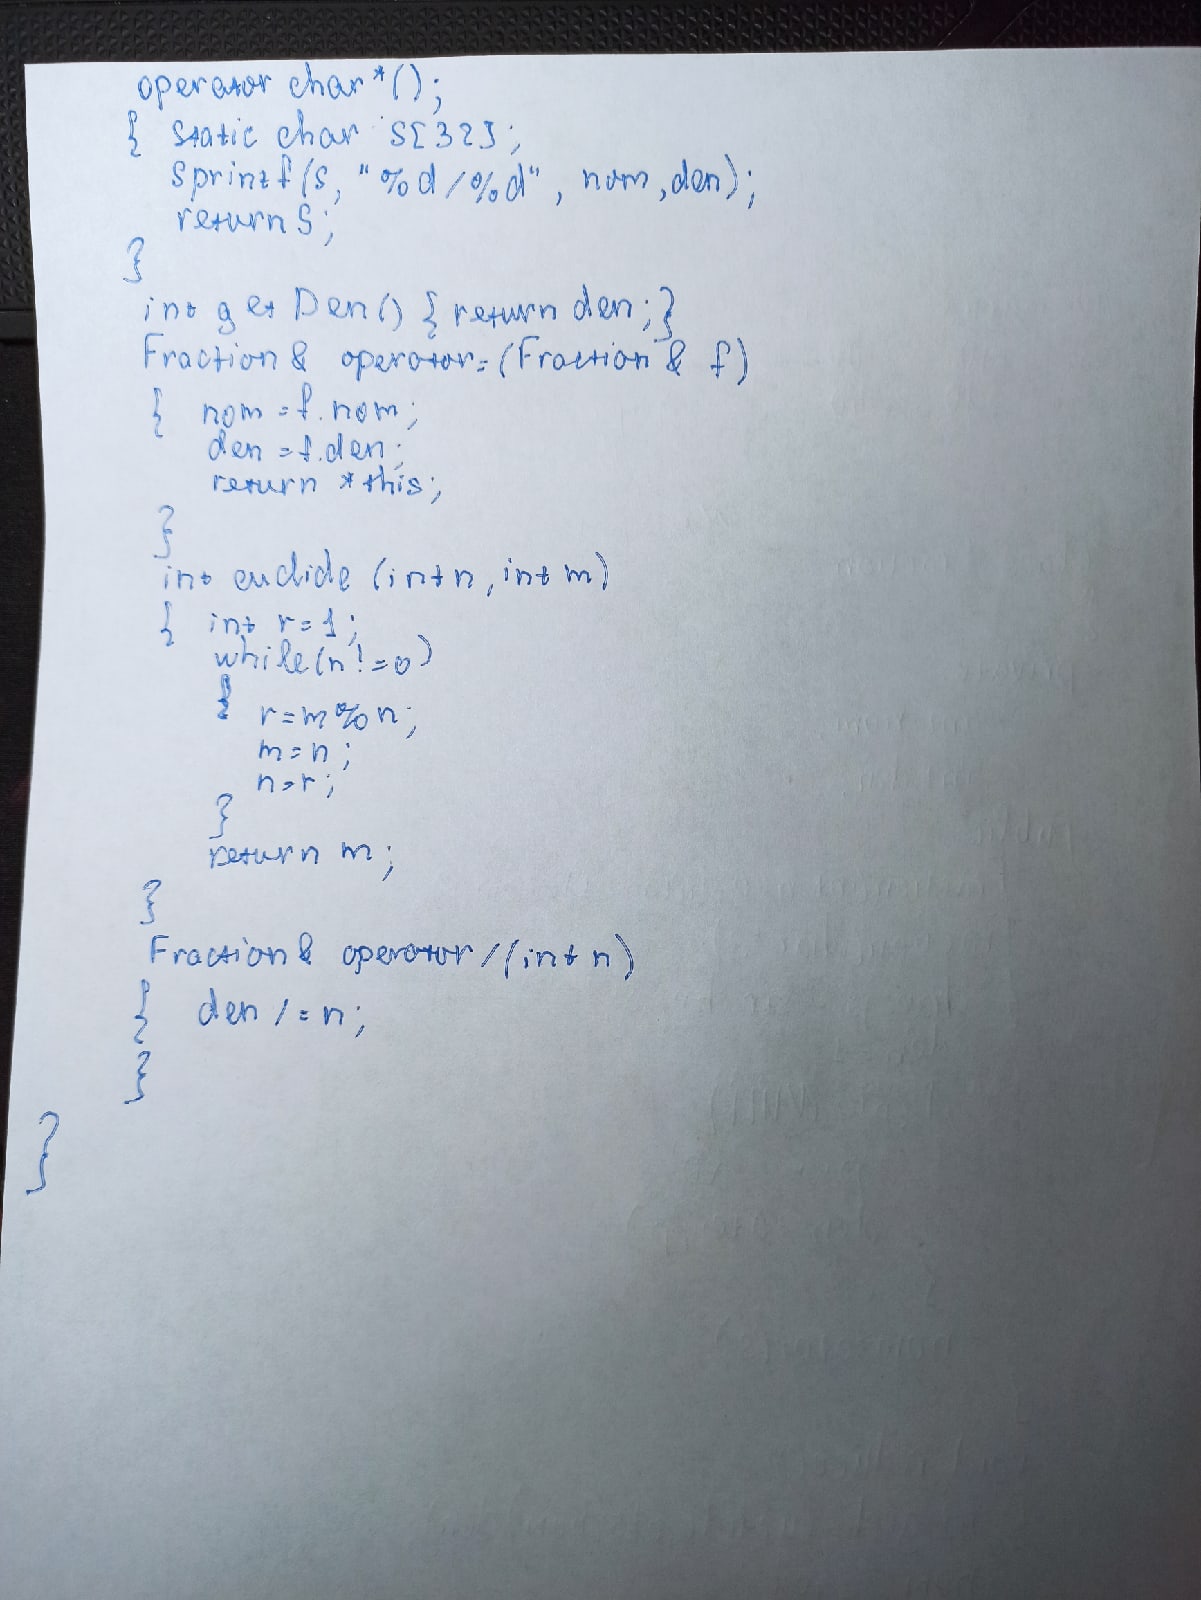 operator char*();
{ static char S[32];
sprintf(s, "%d/%d", nom, den);
return S;
}
int get Den() { return den; }
Fraction & operator=(Fraction & f)
{ nom = f.nom;
den = f.den;
return *this;
}
int euclide (int n, int m)
{ int r=1;
while(n!=0)
{
r=m%n;
m=n;
n=r;
}
return m;
}
Fraction & operator/(int n)
{ den /= n;
}
}